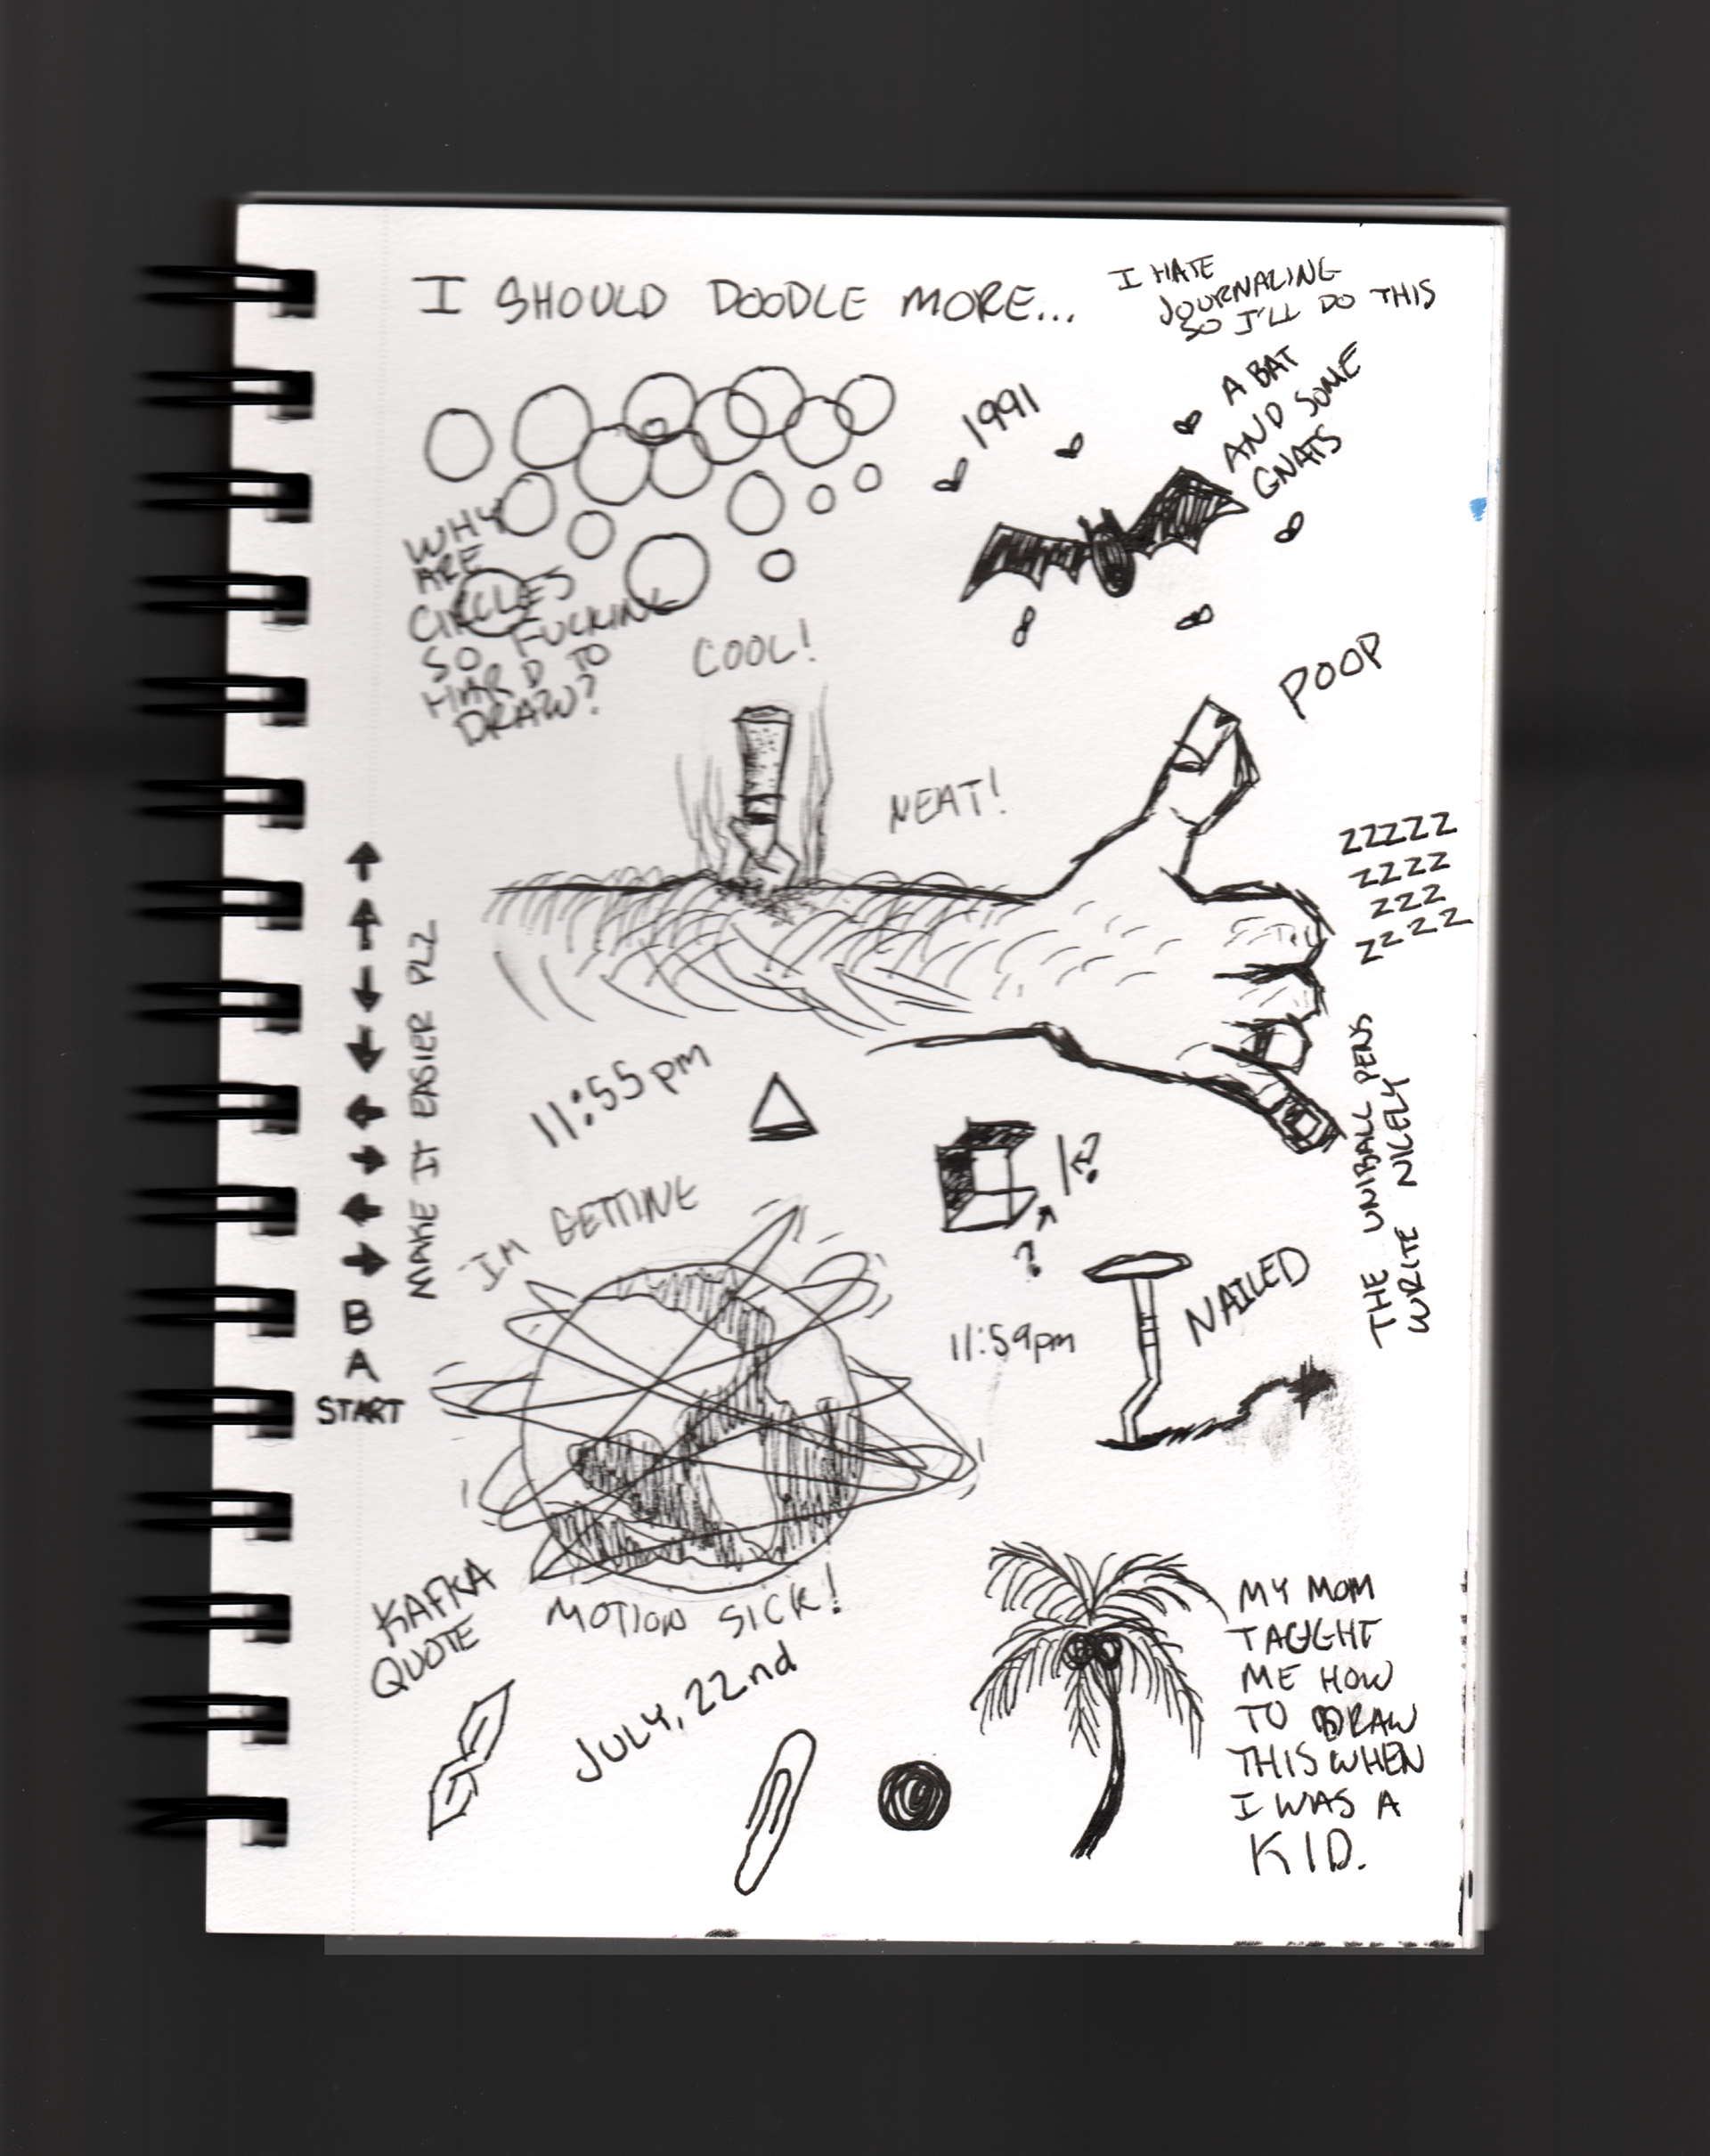 I SHOULD DOODLE MORE...
I HATE
JOURNALING
SO I'LL DO THIS
A BAT
AND SOME
GNATS
1991
WHY
ARE
CIRCLES
SO FUCKING
HARD TO
DRAW?
COOL!
POOP
NEAT!
ZZZZZ
ZZZZ
ZZZ
ZZZZ
↑
↑
↓
↓
←
→
←
→
B
A
START
MAKE IT EASIER PLZ
11:55pm
THE UNIBALL PENS
WRITE NICELY
?
I'M GETTING
MOTION SICK!
11:59pm
NAILED
KAFKA
QUOTE
JULY, 22nd
MY MOM
TAUGHT
ME HOW
TO DRAW
THIS WHEN
I WAS A
KID.